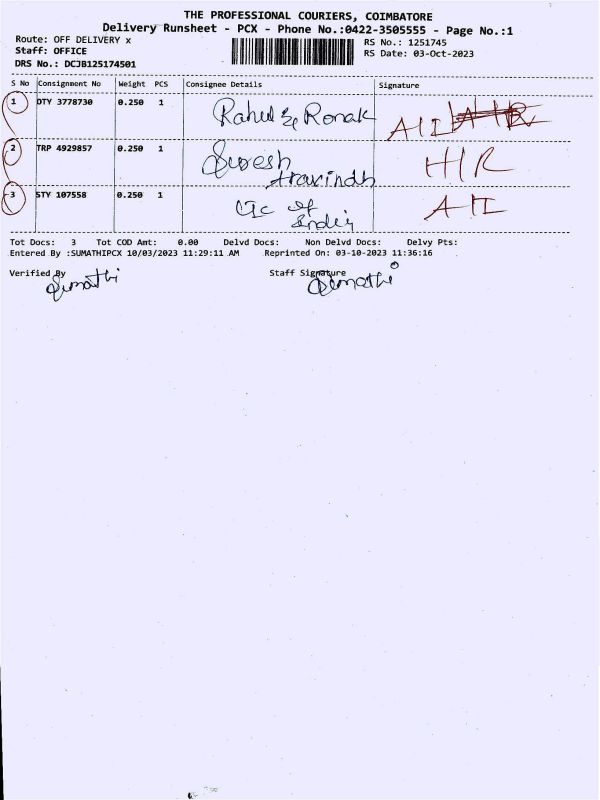 THE PROFESSIONAL COURIERS, COIMBATORE
Delivery Runsheet - PCX - Phone No.:0422-3505555 - Page No.:1
Route: OFF DELIVERY x
RS No.: 1251745
Staff: OFFICE
RS Date: 03-Oct-2023
DRS No.: DCJB125174501
S No Consignment No Weight PCS Consignee Details Signature
1 DTY 3778730 0.250 1 Rahul & Ronak
2 TRP 4929857 0.250 1 Suresh H/R
Aravindh
3 STY 107558 0.250 1 LIC of
India
Tot Docs: 3 Tot COD Amt: 0.00 Delvd Docs: Non Delvd Docs: Delvy Pts:
Entered By :SUMATHIPCX 10/03/2023 11:29:11 AM Reprinted On: 03-10-2023 11:36:16
Verified By Staff Signature
Sumathi Sumathi